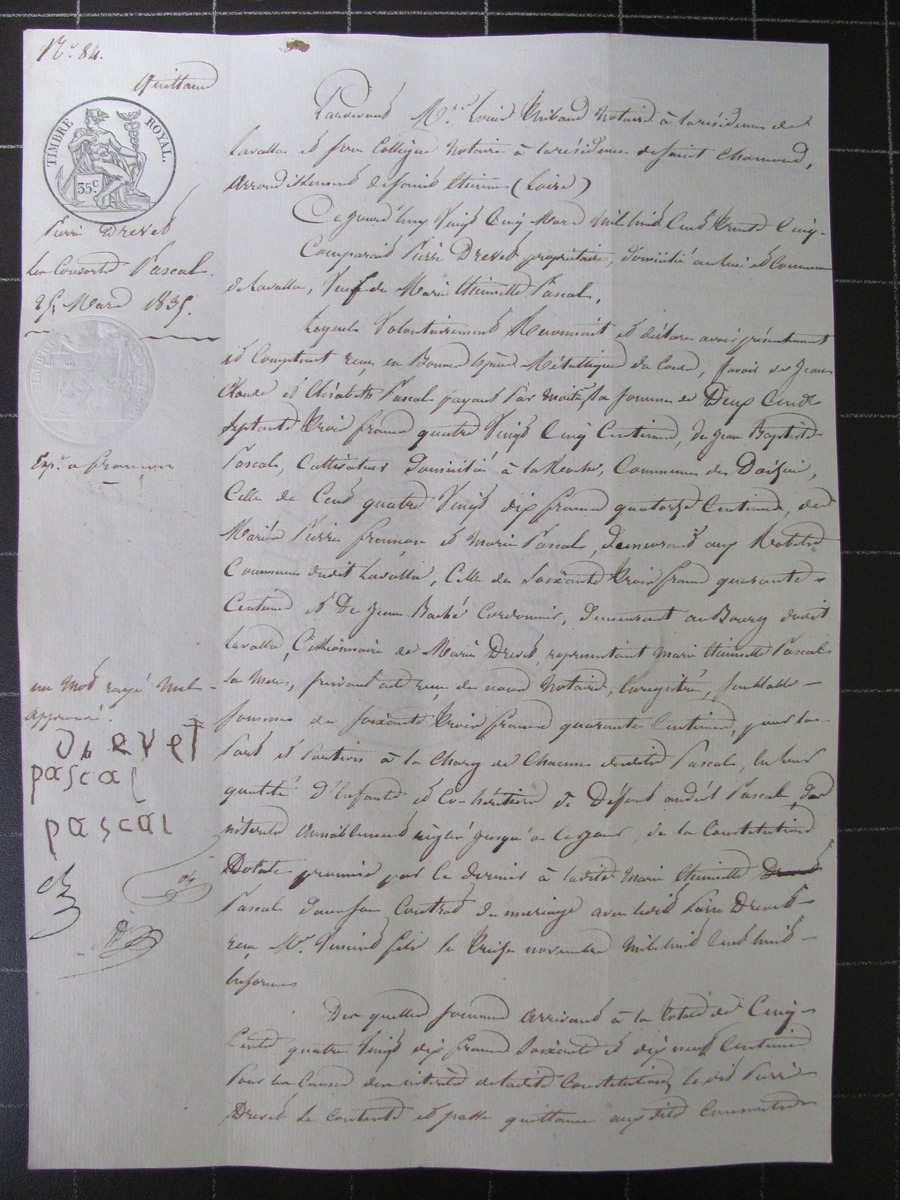 N.° 84.
Quittance
TIMBRE ROYAL.
35.c
Pierre Drevet
Les Consorts Pascal.
25 Mars 1835.
Exp.n a fromman
un mot rayé nul
approuvé.
drevet
pascal
pascal
Pardevant M.tre Louis Thibaud Notaire à la résidence de
Lavalla et son Collègue Notaire à la résidence de Saint Chamond,
arrondissement de Saint Etienne (Loire)
Ce jourd'huy Vingt Cinq Mars Mil huit Cent Trente Cinq
Comparait Pierre Drevet propriétaire, domicilié au lieu et Commune
de Lavalla, Veuf de Marie Thérèse Pascal,
Lequel Volontairement Reconnait et déclare avoir présentement
et Comptant reçu en Bonnes Espèces Métallique du Cours, savoir de Jean
Claude et Elisabeth Pascal payant Par moitié, la somme de Deux Cents
septante Trois francs quatre Vingt Cinq Centimes, de Jean Baptiste
Pascal, Cultivateur domicilié à la Commune de Doizieu,
Celle de Cent quatre Vingt dix francs quatorze Centimes, des
Mariés Pierre fromman et Marie Pascal, demeurant aux
Commune dudit Lavalla, Celle de Soixante Trois francs quarante
Centimes et De Jean Baché Cordonnier, demeurant au Bourg dudit
Lavalla, Cessionnaire de Marie Drevet, représentant Marie Pascal
sa mère, suivant acte reçu de nous Notaire, Enregistré, semblable
somme de soixante Trois francs quarante Centimes, pour la
Part et Portion à la Charge de Chacun desdits Pascal, en leur
qualité d'Enfants et Cohéritiers de Défunt audit Pascal, des
intérêts amiablement réglés jusqu'à ce jour, de la Constitution
Dotale promise par ce dernier à ladite Marie
Pascal dans son Contrat de mariage avec ledit Pierre Drevet
reçu M.e fils le Treize novembre Mil huit Cent huit
En forme
Des quelles sommes arrivant à la Totale de Cinq
Cents quatre Vingt dix francs Soixante et dix neuf Centimes
Pour les Causes des intérêts de ladite Constitution, le dit Pierre
Drevet Se contente et passe quittance aux dits